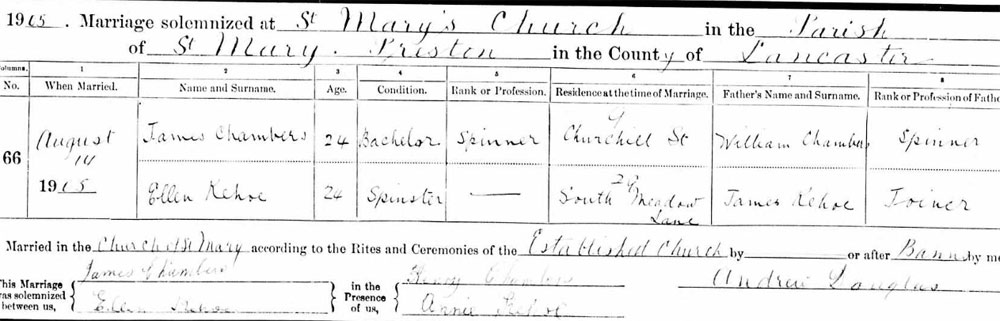 1915. Marriage solemnized at St Mary's Church in the Parish
of St Mary. Preston in the County of Lancaster
Columns. 1 2 3 4 5 6 7 8
No. When Married. Name and Surname. Age. Condition. Rank or Profession. Residence at the time of Marriage. Father's Name and Surname. Rank or Profession of Father
66 August 14 1915
James Chambers 24 Bachelor Spinner Churchill St William Chambers Spinner
Ellen Kehoe 24 Spinster — South Meadow Lane James Kehoe Joiner
Married in the Church of St Mary according to the Rites and Ceremonies of the Established Church by or after Banns by me
This Marriage was solemnized between us, { James Chambers Ellen Kehoe } in the Presence of us, { Henry Chambers Annie Kehoe } Andrew Douglas